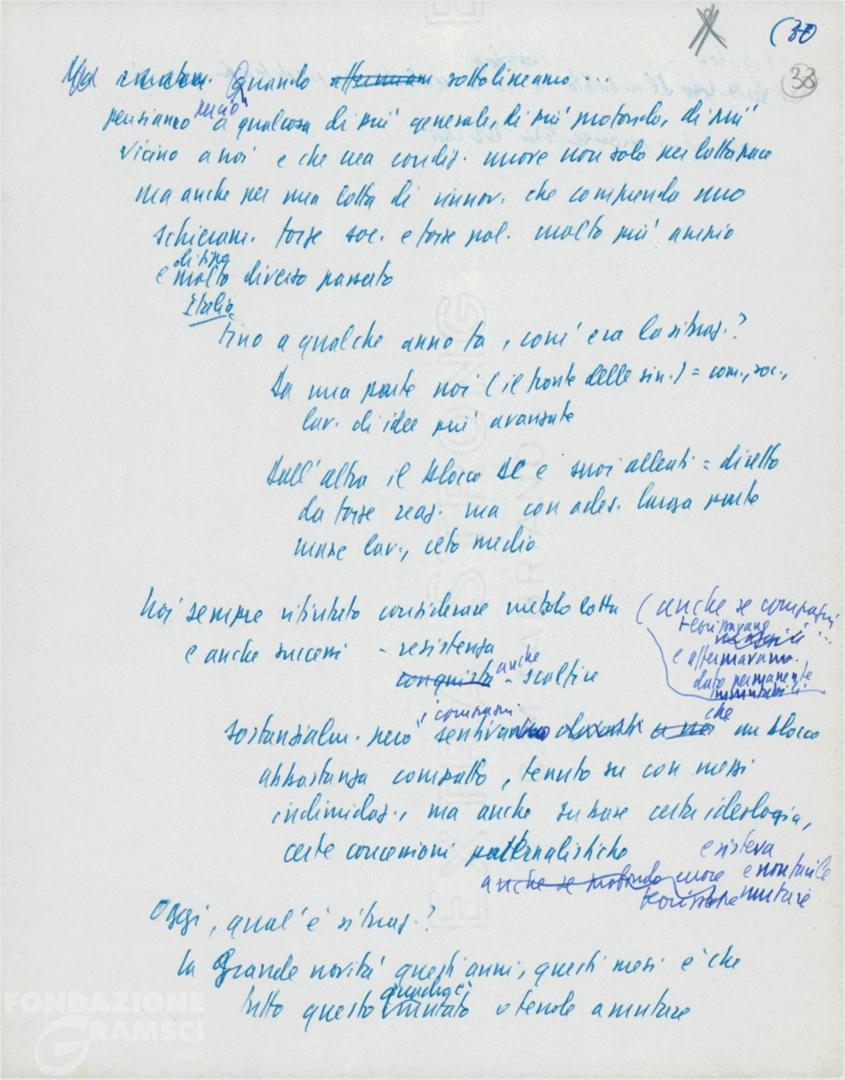 (30
33
Quando affermiamo sottolineamo...
pensiamo però a qualcosa di più generale, di più profondo, di più
vicino a noi e che crea condiz. nuove non solo per lotta pace
ma anche per una lotta di rinnov. che comprenda uno
schieram. forze soc. e forze pol. molto più ampio
di tipo
e molto diverso passato
Italia
Fino a qualche anno fa, com'era la situaz.?
Da una parte noi (il fronte delle sin.) = com., soc.,
lav. di idee più avanzate
Dall'altra il blocco DC e suoi alleati = diretto
da forze reaz. ma con ades. larga parte
masse lav., ceto medio
Noi sempre rifiutato considerare metodo lotta (anche se compagni
e anche successi - resistenza
e affermavamo.
dato permanente
immutabili
conquista - anche scalfire
i compagni che
sostanzialm. però sentivano a noi un blocco
abbastanza compatto, tenuto su con mezzi
indimidaz., ma anche su base certa ideologia,
certe concessioni paternalistiche
esisteva
anche se profonda e non facile
mutare
Oggi, qual'è situaz.?
La Grande novità questi anni, questi mesi è che
tutto questo è mutato o tende a mutare
FONDAZIONE
GRAMSCI